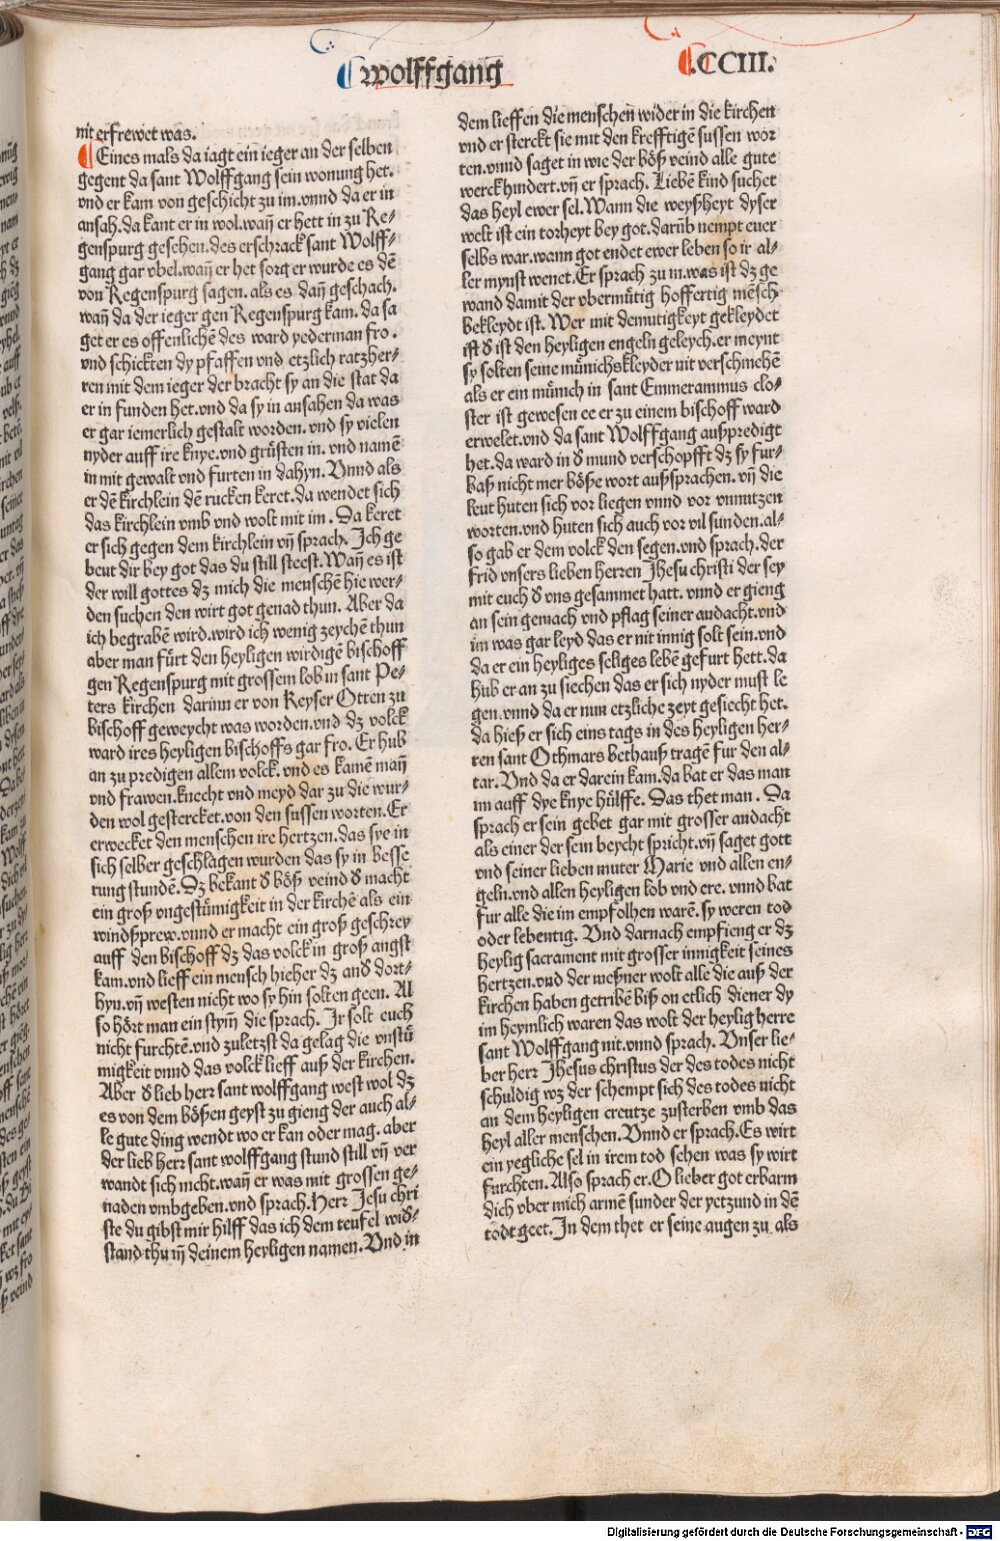 wolffgang
.CCIII.
nit erfrewet was.
Eines mals da iagt ein ieger an der selben
gegent da sant Wolffgang sein wonung het.
vnd er kam von geschicht zu im.vnnd da er in
ansah.da kant er in wol.wañ er hett in zu Re-
genspurg gesehen.des erschrack sant Wolff-
gang gar vbel.wañ er het sorg er wurde es dē
von Regenspurg sagen.als es dañ geschach.
wañ da der ieger gen Regenspurg kam.da sa
get er es offenlichē des ward yederman fro.
vnd schickten dy pfaffen vnd etzlich ratzher-
ren mit dem ieger der bracht sy an die stat da
er in funden het.vnd da sy in ansahen da was
er gar iemerlich gestalt worden.vnd sy vielen
nyder auff ire knye.vnd grůsten in.vnd namē
in mit gewalt vnd furten in dahyn. Vnnd als
er dē kirchlein dē rucken keret.da wendet sich
das kirchlein vmb vnd wolt mit im. Da keret
er sich gegen dem kirchlein vñ sprach. Ich ge
beut dir bey got das du still steest.Wañ es ist
der will gottes dz mich die menschē hie wer-
den suchen den wirt got genad thun. Aber da
ich begrabē wird.wird ich wenig zeychē thun
aber man fůrt den heyligen wirdigē bischoff
gen Regenspurg mit grossem lob in sant Pe-
ters kirchen darinn er von Keyser Otten zu
bischoff geweycht was worden.vnd dz volck
ward ires heyligen bischoffs gar fro. Er hub
an zu predigen allem volck.vnd es kamē mañ
vnd frawen.knecht vnd meyd dar zu die wur-
den wol gestercket.von den sussen worten. Er
erwecket den menschen ire hertzen.das sye in
sich selber geschlagen wurden das sy in besse
rung stundē.Dz bekant d̄ bőß veind d̄ macht
ein groß vngestůmigkeit in der kirchē als ein
windßprew.vnnd er macht ein groß geschrey
auff den bischoff dz das volck in groß angst
kam.vnd lieff ein mensch hieher dz and̄ dort-
hyn.vñ westen nicht wo sy hin solten geen. Al
so hőrt man ein stym̄ die sprach. Ir solt euch
nicht furchtē.vnd zuletzst da gelag die vnstů
migkeit vnnd das volck lieff auß der kirchen.
Aber d̄ lieb herr sant wolffgang west wol dz
es von dem bőßen geyst zu gieng der auch al-
le gute ding wendt wo er kan oder mag. aber
der lieb herr sant wolffgang stund still vñ ver
wandt sich nicht.wañ er was mit grossen ge-
naden vmbgeben.vnd sprach.Herr Jesu chri
ste du gibst mir hilff das ich dem teufel wid̄-
stand thu in̄ deinem heyligen namen. Vnd in
dem lieffen die menschen wider in die kirchen
vnd er sterckt sie mit den krefftigē sussen wor
ten.vnnd saget in wie der bőß veind alle gute
werck hindert.vñ er sprach. Liebē kind suchet
das heyl ewer sel.Wann die weyßheyt dyser
welt ist ein torheyt bey got.darūb nempt euer
selbs war.wann got endet ewer leben so ir al-
ler mynst wenet.Er sprach zu in.was ist dz ge
wand damit der vbermůtig hoffertig mēsch
bekleydt ist. Wer mit demutigkeyt gekleydet
ist d̄ ist den heyligen engeln geleych.er meynt
sy solten seine můnichskleyder nit verschmehē
als er ein můnich in sant Emmerammus clo-
ster ist gewesen ee er zu einem bischoff ward
erwelet.vnd da sant Wolffgang außpredigt
het.da ward in d̄ mund verschopfft dz sy fur-
baß nicht mer bőße wort außsprachen.vñ die
leut huten sich vor liegen vnnd vor vnnutzen
worten.vnd huten sich auch vor vil sunden.al-
so gab er dem volck den segen.vnd sprach.der
frid vnsers lieben herren Jhesu christi der sey
mit euch d̄ vns gesammet hatt. vnnd er gieng
an sein gemach vnd pflag seiner andacht.vnd
im was gar leyd das er nit innig solt sein.vnd
da er ein heyliges seliges lebē gefurt hett.da
hub er an zu siechen das er sich nyder must le
gen.vnnd da er nun etzliche zeyt gesiecht het.
da hieß er sich eins tags in des heyligen her-
ren sant Othmars bethauß tragē fur den al-
tar. Vnd da er darein kam.da bat er das man
im auff dye knye hůlffe. Das thet man. Da
sprach er sein gebet gar mit grosser andacht
als einer der sein beycht spricht.vñ saget gott
vnd seiner lieben muter Marie vnd allen en-
geln.vnd allen heyligen lob vnd ere. vnnd bat
fur alle die im empfolhen warē. sy weren tod
oder lebentig. Vnd darnach empfieng er dz
heylig sacrament mit grosser innigkeit seines
hertzen.vnd der meßner wolt alle die auß der
kirchen haben getribē biß on etlich diener dy
im heymlich waren das wolt der heylig herre
sant Wolffgang nit.vnnd sprach. Vnser lie-
ber herr Jhesus christus der des todes nicht
schuldig wz der schempt sich des todes nicht
an dem heyligen creutze zusterben vmb das
heyl aller menschen. Vnnd er sprach. Es wirt
ein yegliche sel in irem tod sehen was sy wirt
furchten. Also sprach er. O lieber got erbarm
dich vber mich armē sunder der yetzund in dē
todt geet. In dem thet er seine augen zu als
Digitalisierung gefördert durch die Deutsche Forschungsgemeinschaft - DFG